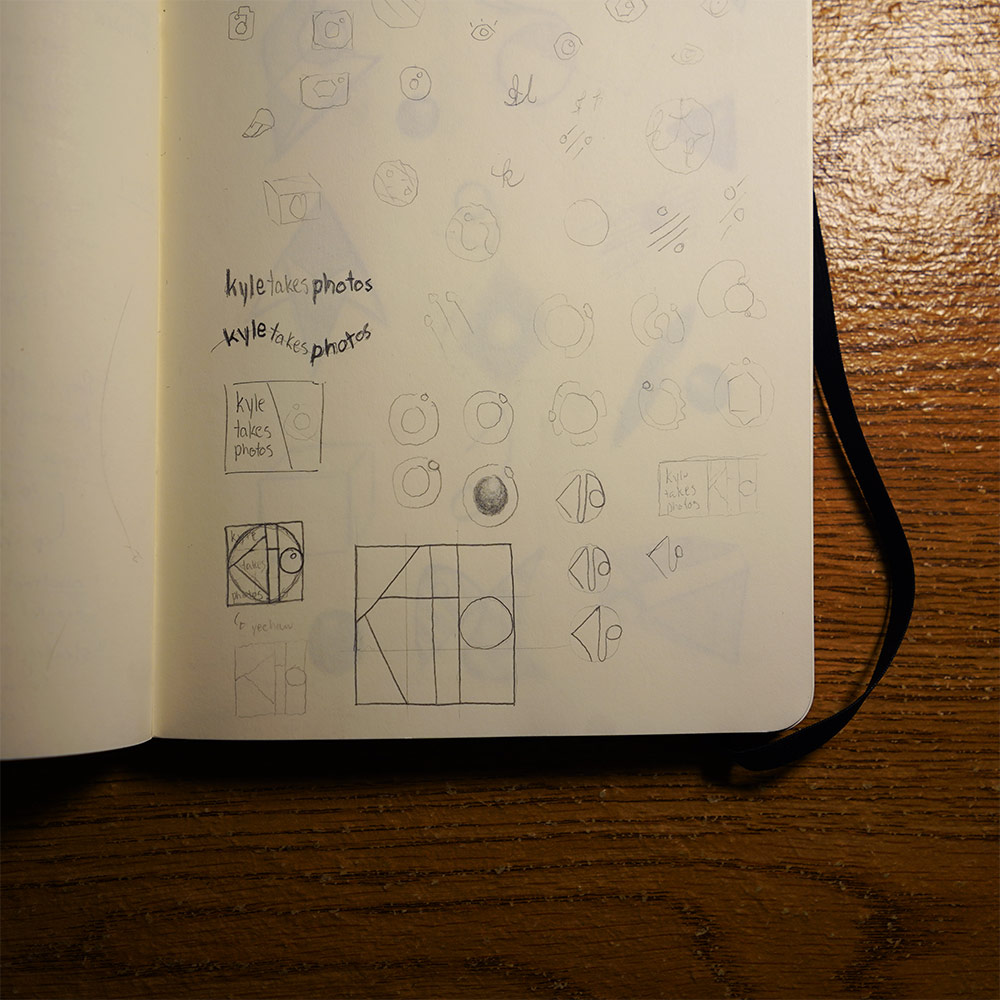 k
kyletakesphotos
kyletakesphotos
kyle
takes
photos
kyle
takes
photos
takes
photos